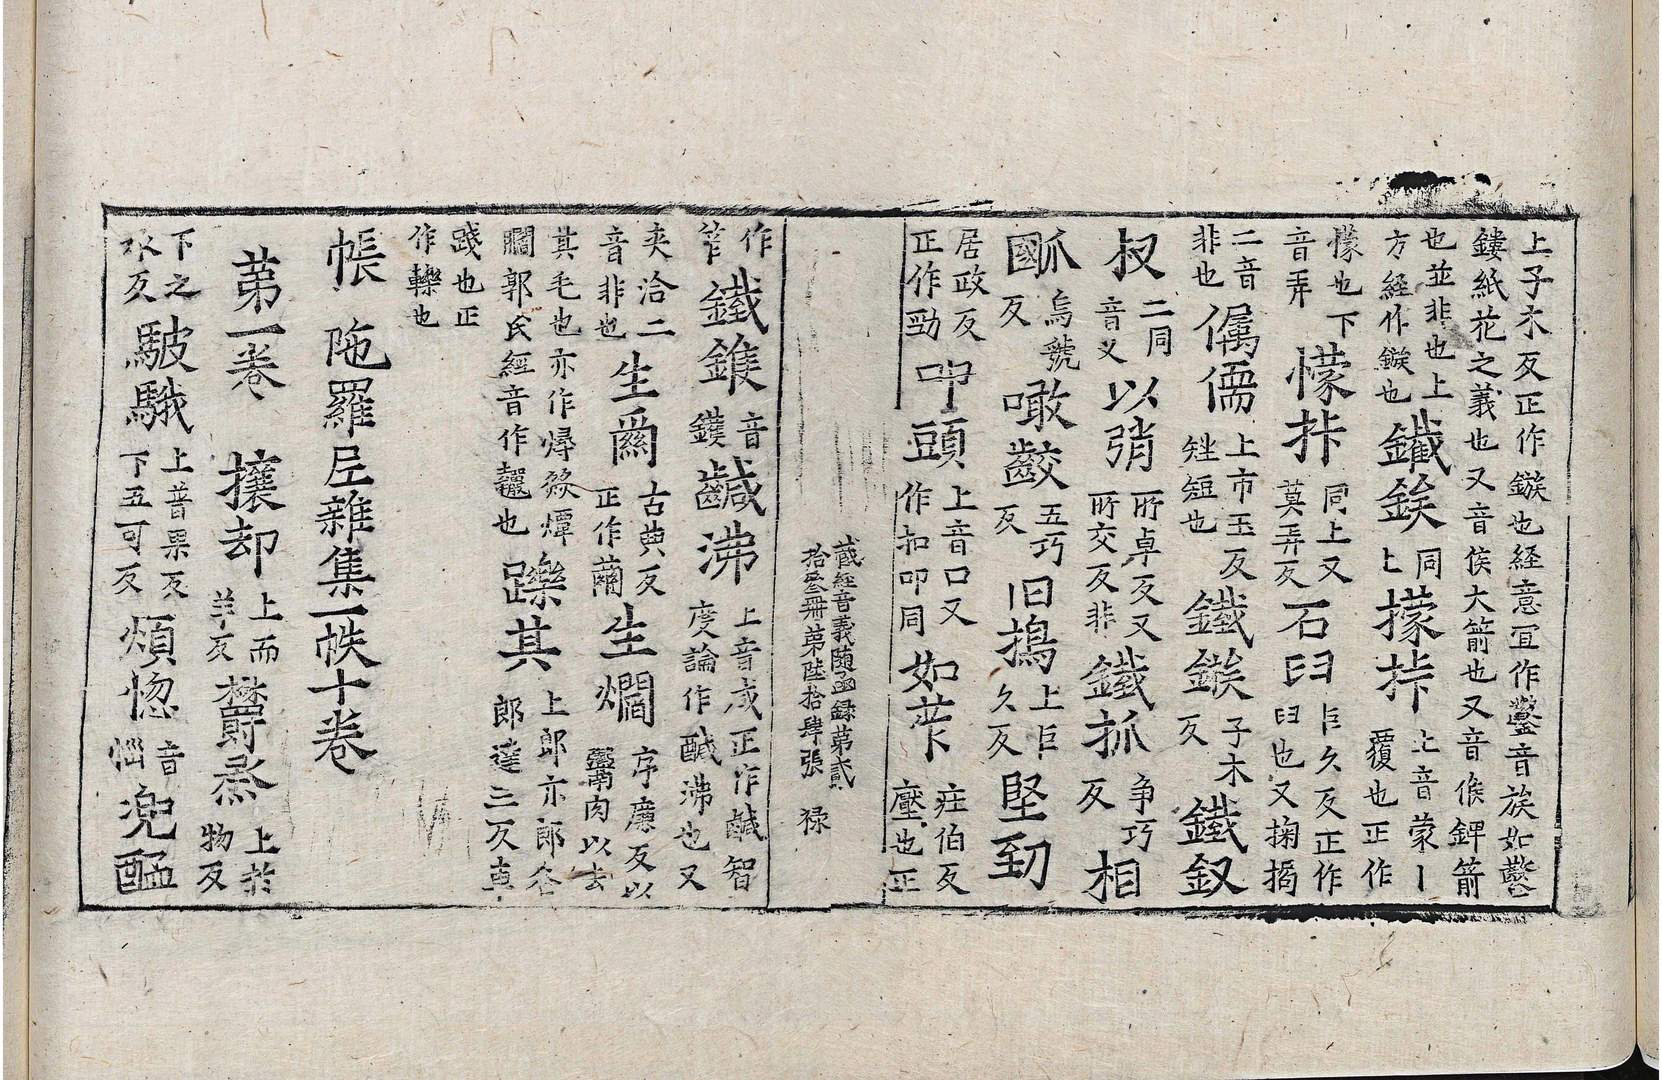 上子木反正作鏃也経意冝作鑿音族如鑿
鏤紙花之義也又音侯大箭也又音候錍箭
也並非也上方経作鏃也鐵鍭同上㩚拤上音蒙丨覆也正作
懞也下音弄懞拤同上又莫弄反石臼臼久反正作臼也又掬搊
二音非也㒔儒上市玉反矬短也鐵鏃子木反鐵釵
叔二同音义以弰所卓反又所交反非鐵抓争巧反相
㼌國烏虢反噉齩五巧反旧擣上臼久反堅勁
居政反正作勁叩頭上音口又作扣叩同如苲疰伯反壓也正
藏経音義随函録第貳拾叁冊第陸拾肆張 禄
作笮鐵錐音鑊鹹沸上音咸正作鹹智度論作醎沸也又
夾洽二音非也生繭古典反正作繭生爓序廉反以鬻肉以去
其毛也亦作燖燅燂爓郭氏経音作也躒其上郎亦郎各郎達三反車
踐也正作轢也
帳 陁羅尼雜集一帙十卷
苐一卷 攘却上而羊反欝烝上於物反
下之水反駊騀上普果反下五可反煩惚音惱兜醯